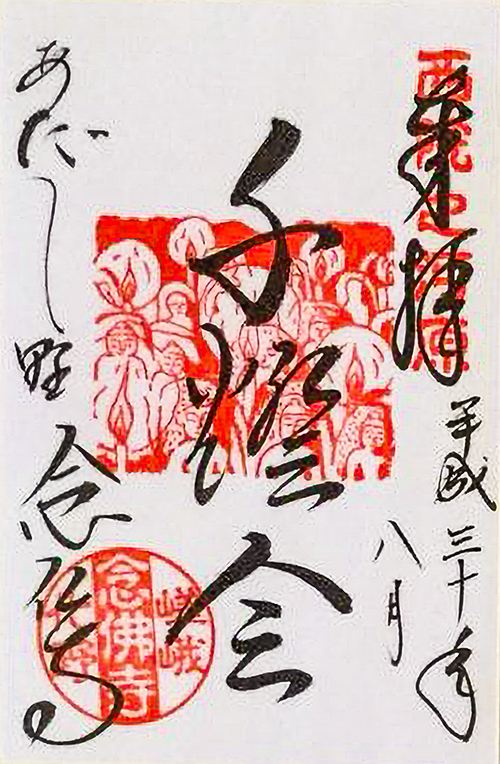 奉拝
平成三十年
八月
千燈会
あだし野念佛寺
嵯峨
念佛寺